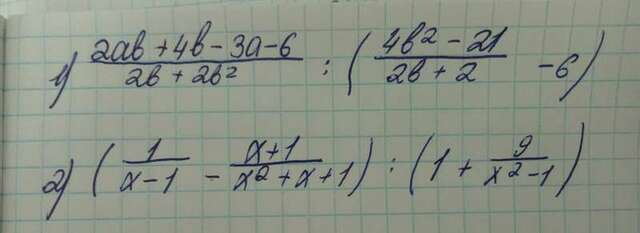 1) (2ab + 4b - 3a - 6)/(2b + 2b²) : ((4b² - 21)/(2b + 2) - 6)
2) (1/(x - 1) - (x + 1)/(x² + x + 1)) : (1 + 9/(x² - 1))